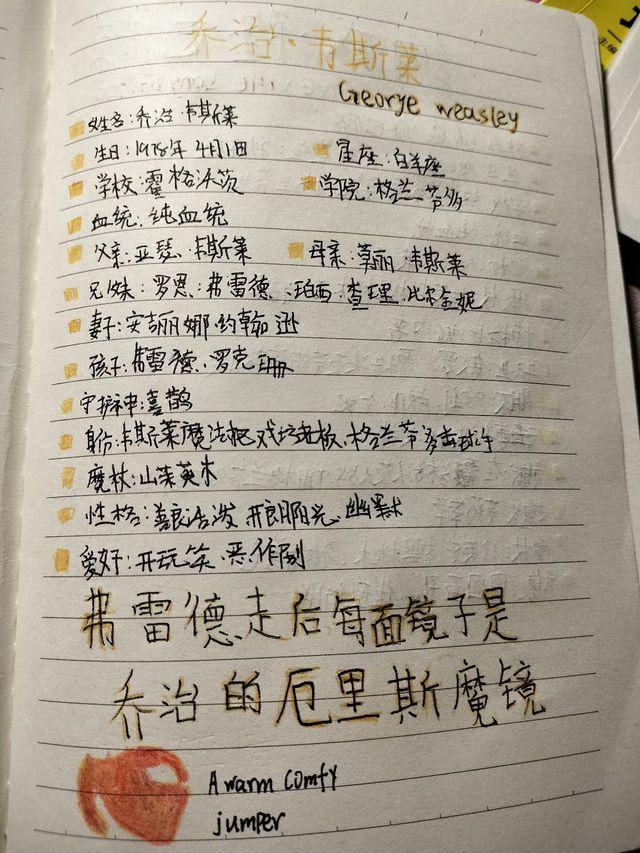 乔治·韦斯莱
George weasley
姓名:乔治·韦斯莱
生日:1978年4月1日 星座:白羊座
学校:霍格沃茨 学院:格兰芬多
血统:纯血统
父亲:亚瑟·韦斯莱 母亲:莫丽·韦斯莱
兄妹:罗恩、弗雷德、珀西、查理、比尔金妮
妻子:安吉丽娜·约翰逊
孩子:弗雷德、罗克珊
守护神:喜鹊
身份:韦斯莱魔法把戏坊老板、格兰芬多击球手
魔杖:山茱萸木
性格:善良活泼 开朗阳光 幽默
爱好:开玩笑·恶作剧
弗雷德走后每面镜子是
乔治的厄里斯魔镜
A warm comfy
jumper
主编